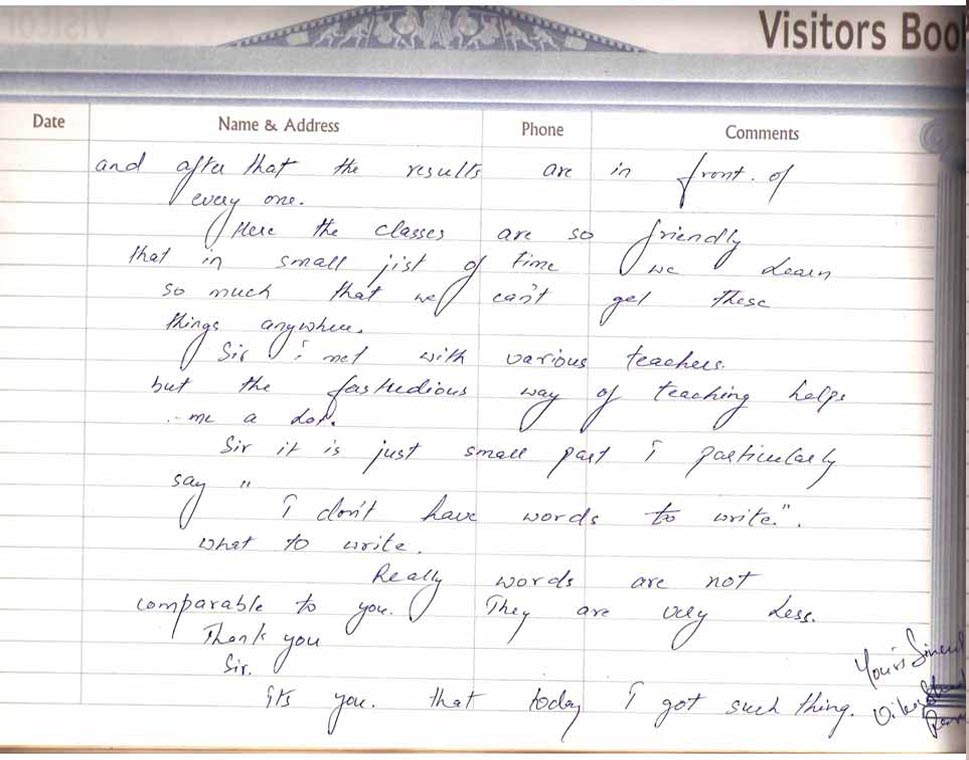 Visitors Boo
Date Name & Address Phone Comments
and after that the results are in front. of
every one.
Here the classes are so friendly
that in small jist of time we learn
so much that we can't get these
things anywhere.
Sir i met with various teachers.
but the fastudious way of teaching helps
me a lot.
Sir it is just small part i particularly
say "
i don't have words to write.".
what to write.
Really words are not
comparable to you. They are very less.
Thank you
Sir.
its you. that today i got such thing.
Your's Sincerel